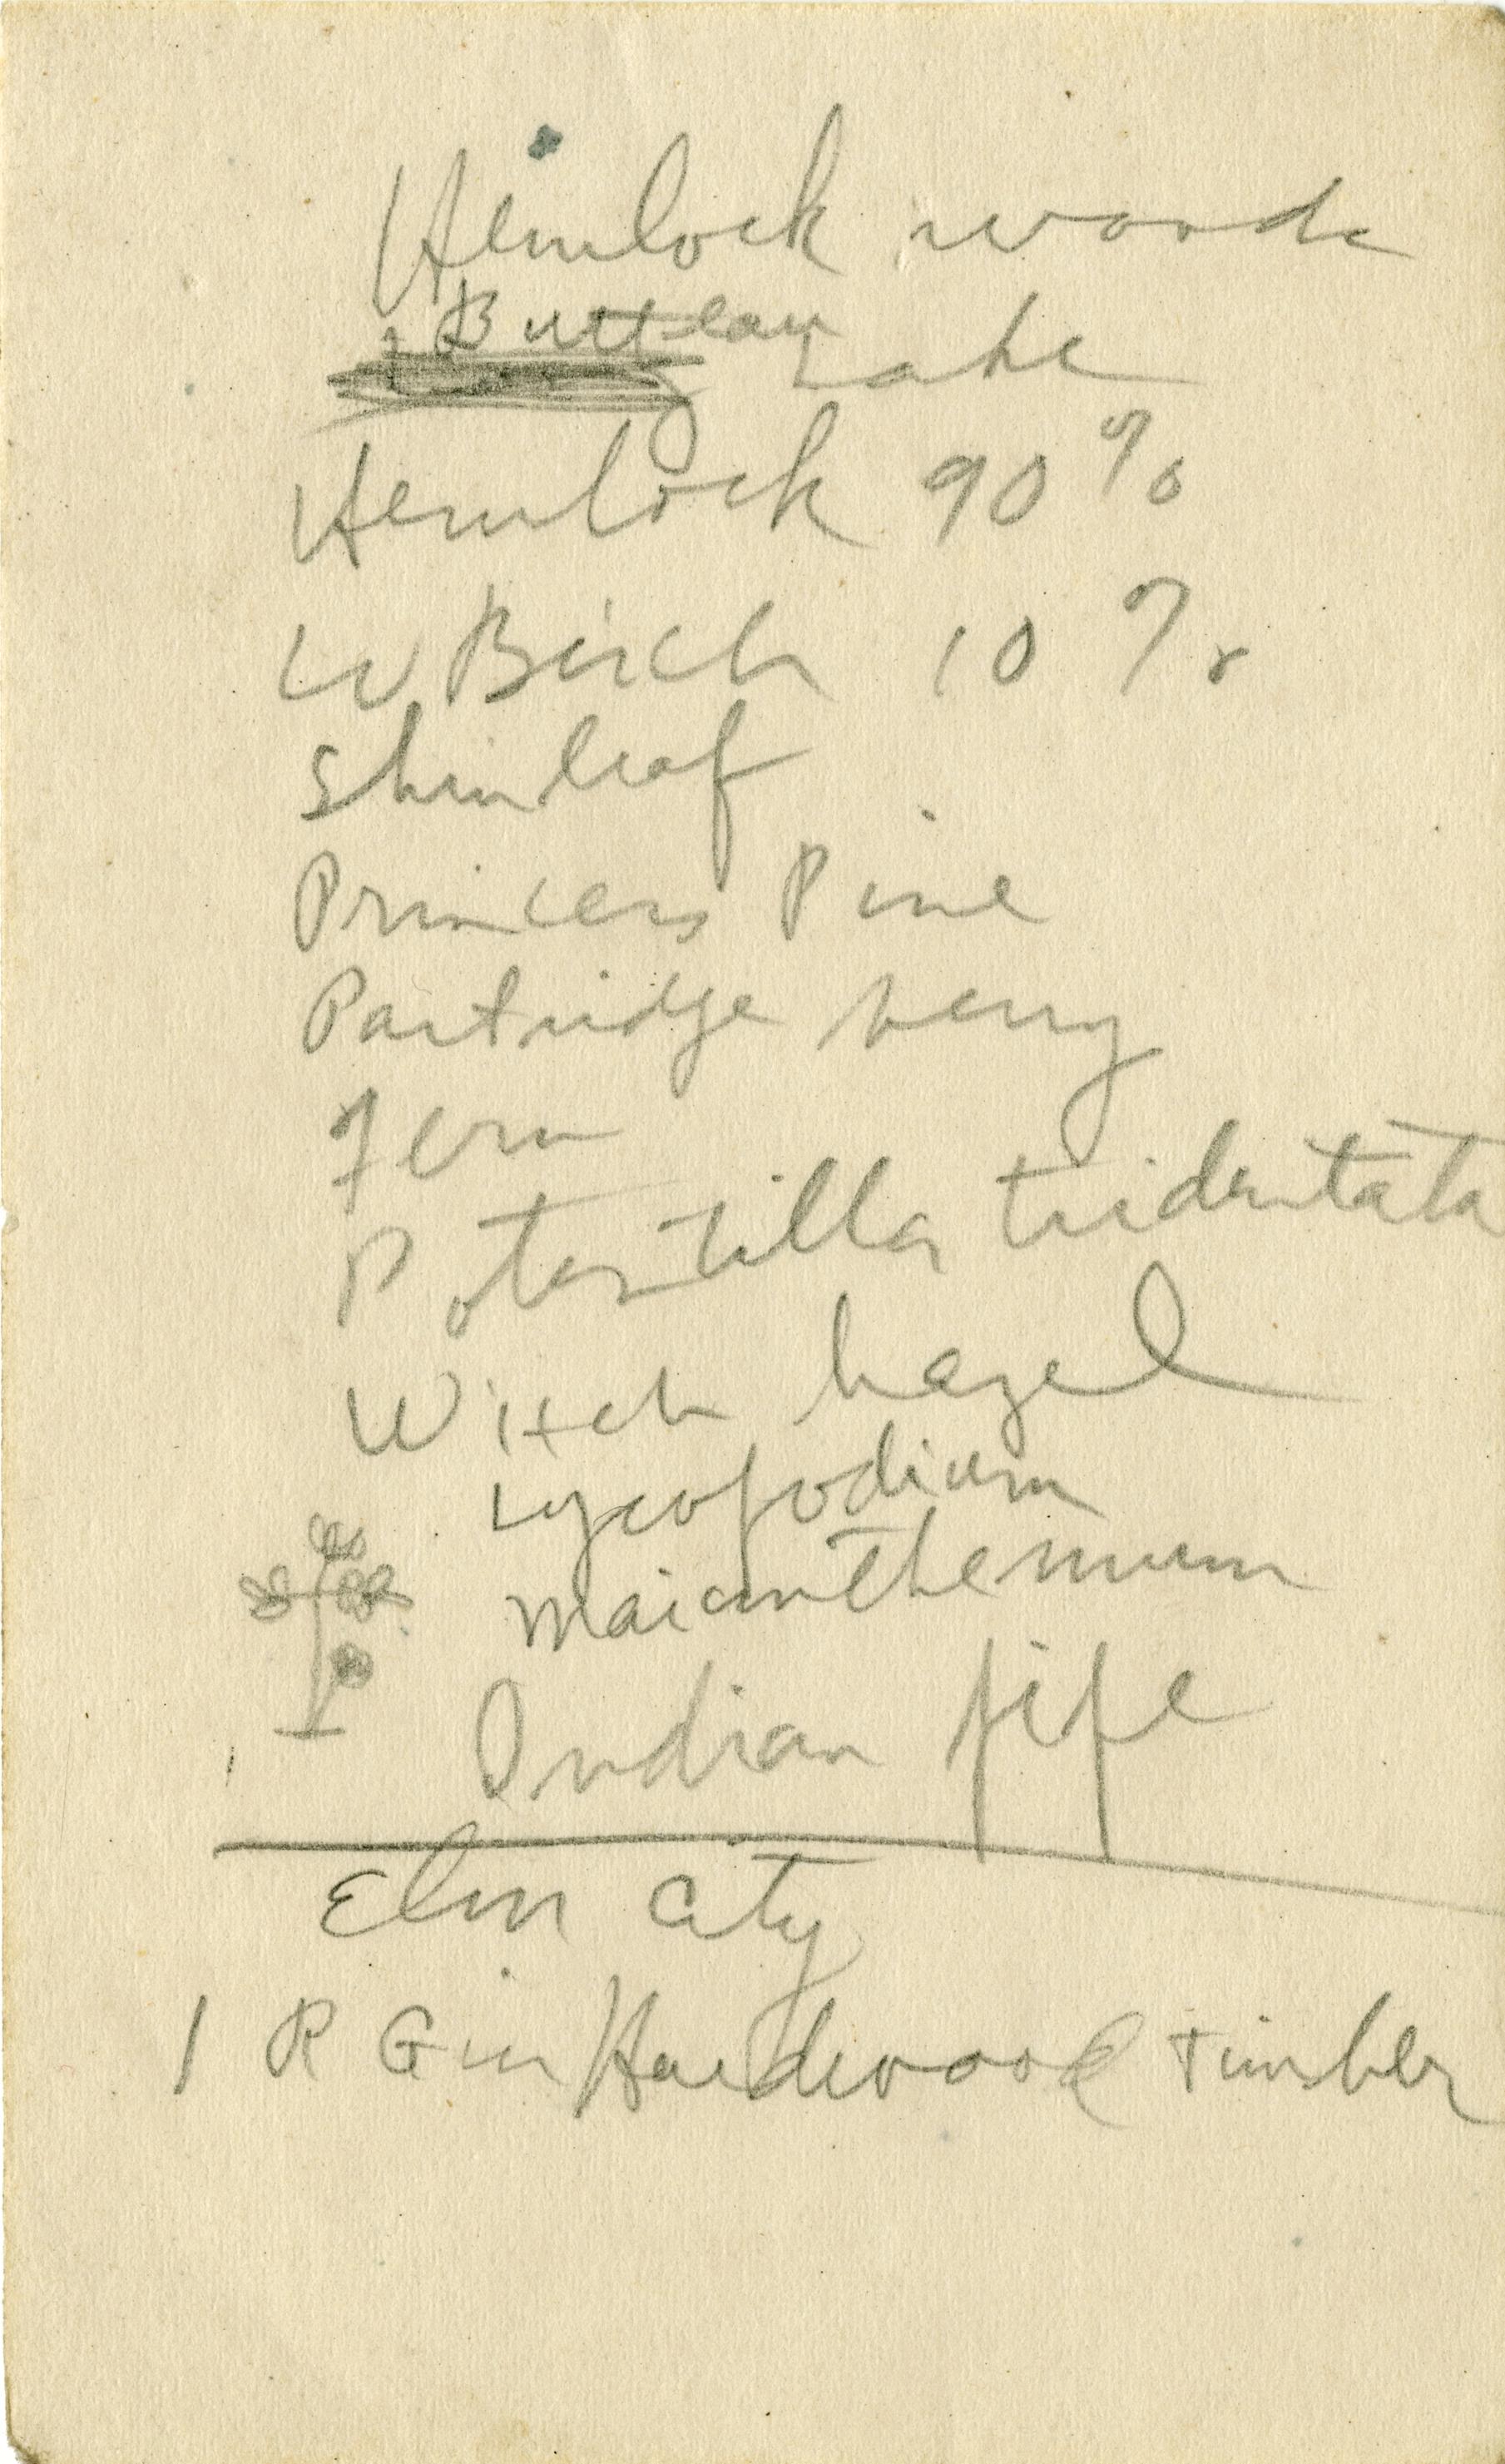 Hemlock woods
Lake
Hemlock 90 %
W Birch 10 %
Shinleaf
Princess Pine
Partridge berry
Fern
Potentilla tridentata
Witch hazel
Lycopodium
Maianthemum
Indian pipe
Elm City
1 R G in Hardwood Timber